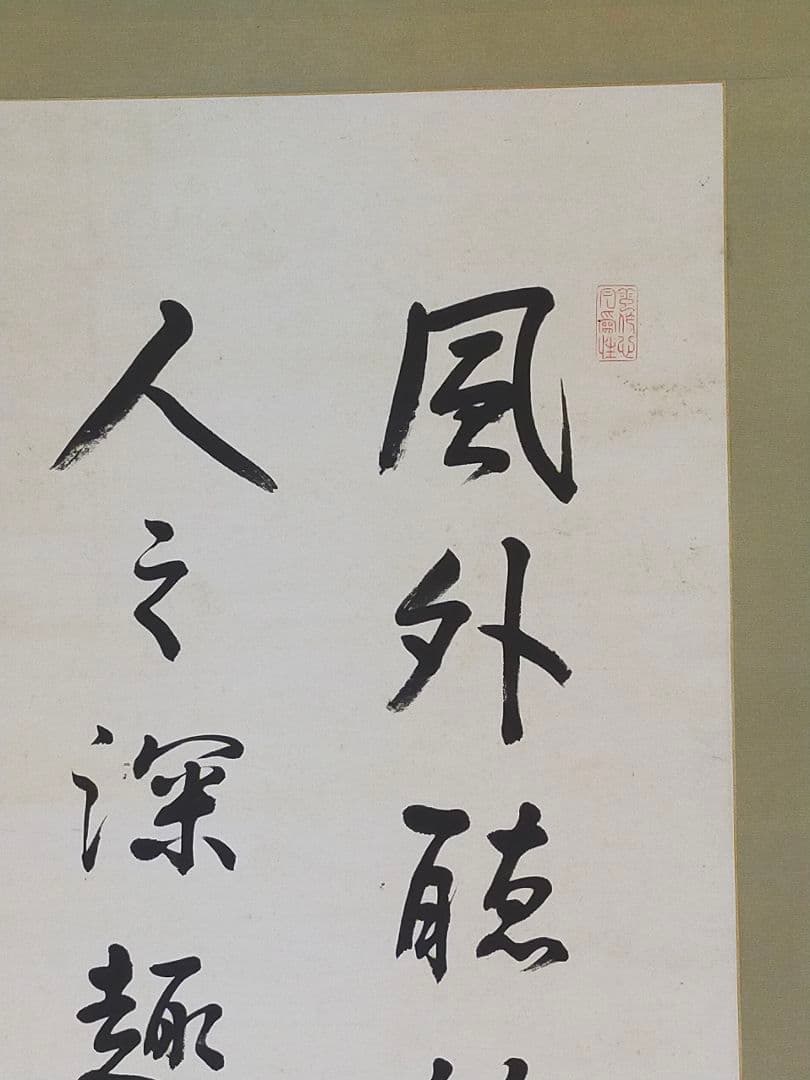 風外聴
人之深趣